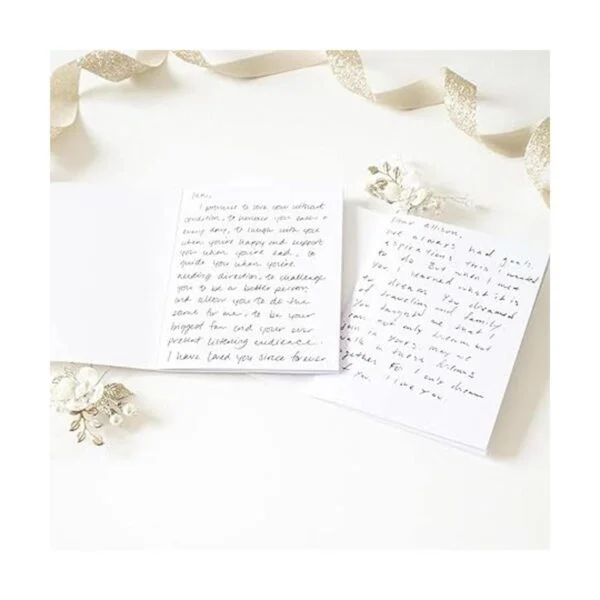 I promise to love you without
condition, to honour you each &
every day, to laugh with you
when you're happy and support
you when you're sad, to
guide you when you're
needing direction, to challenge
you to be a better person
and allow you to do the
same for me, to be your
biggest fan and your ever
present listening audience.
I have loved you since forever
Dear Allison,
always had goals
aspirations things I wanted
to do But when I met
you I learned what it is
to dream. You dreamed
of traveling and family.
You taught me that I
can not only dream but
in yours, may we
walk in these dreams
together For I only dream
of you. I love you